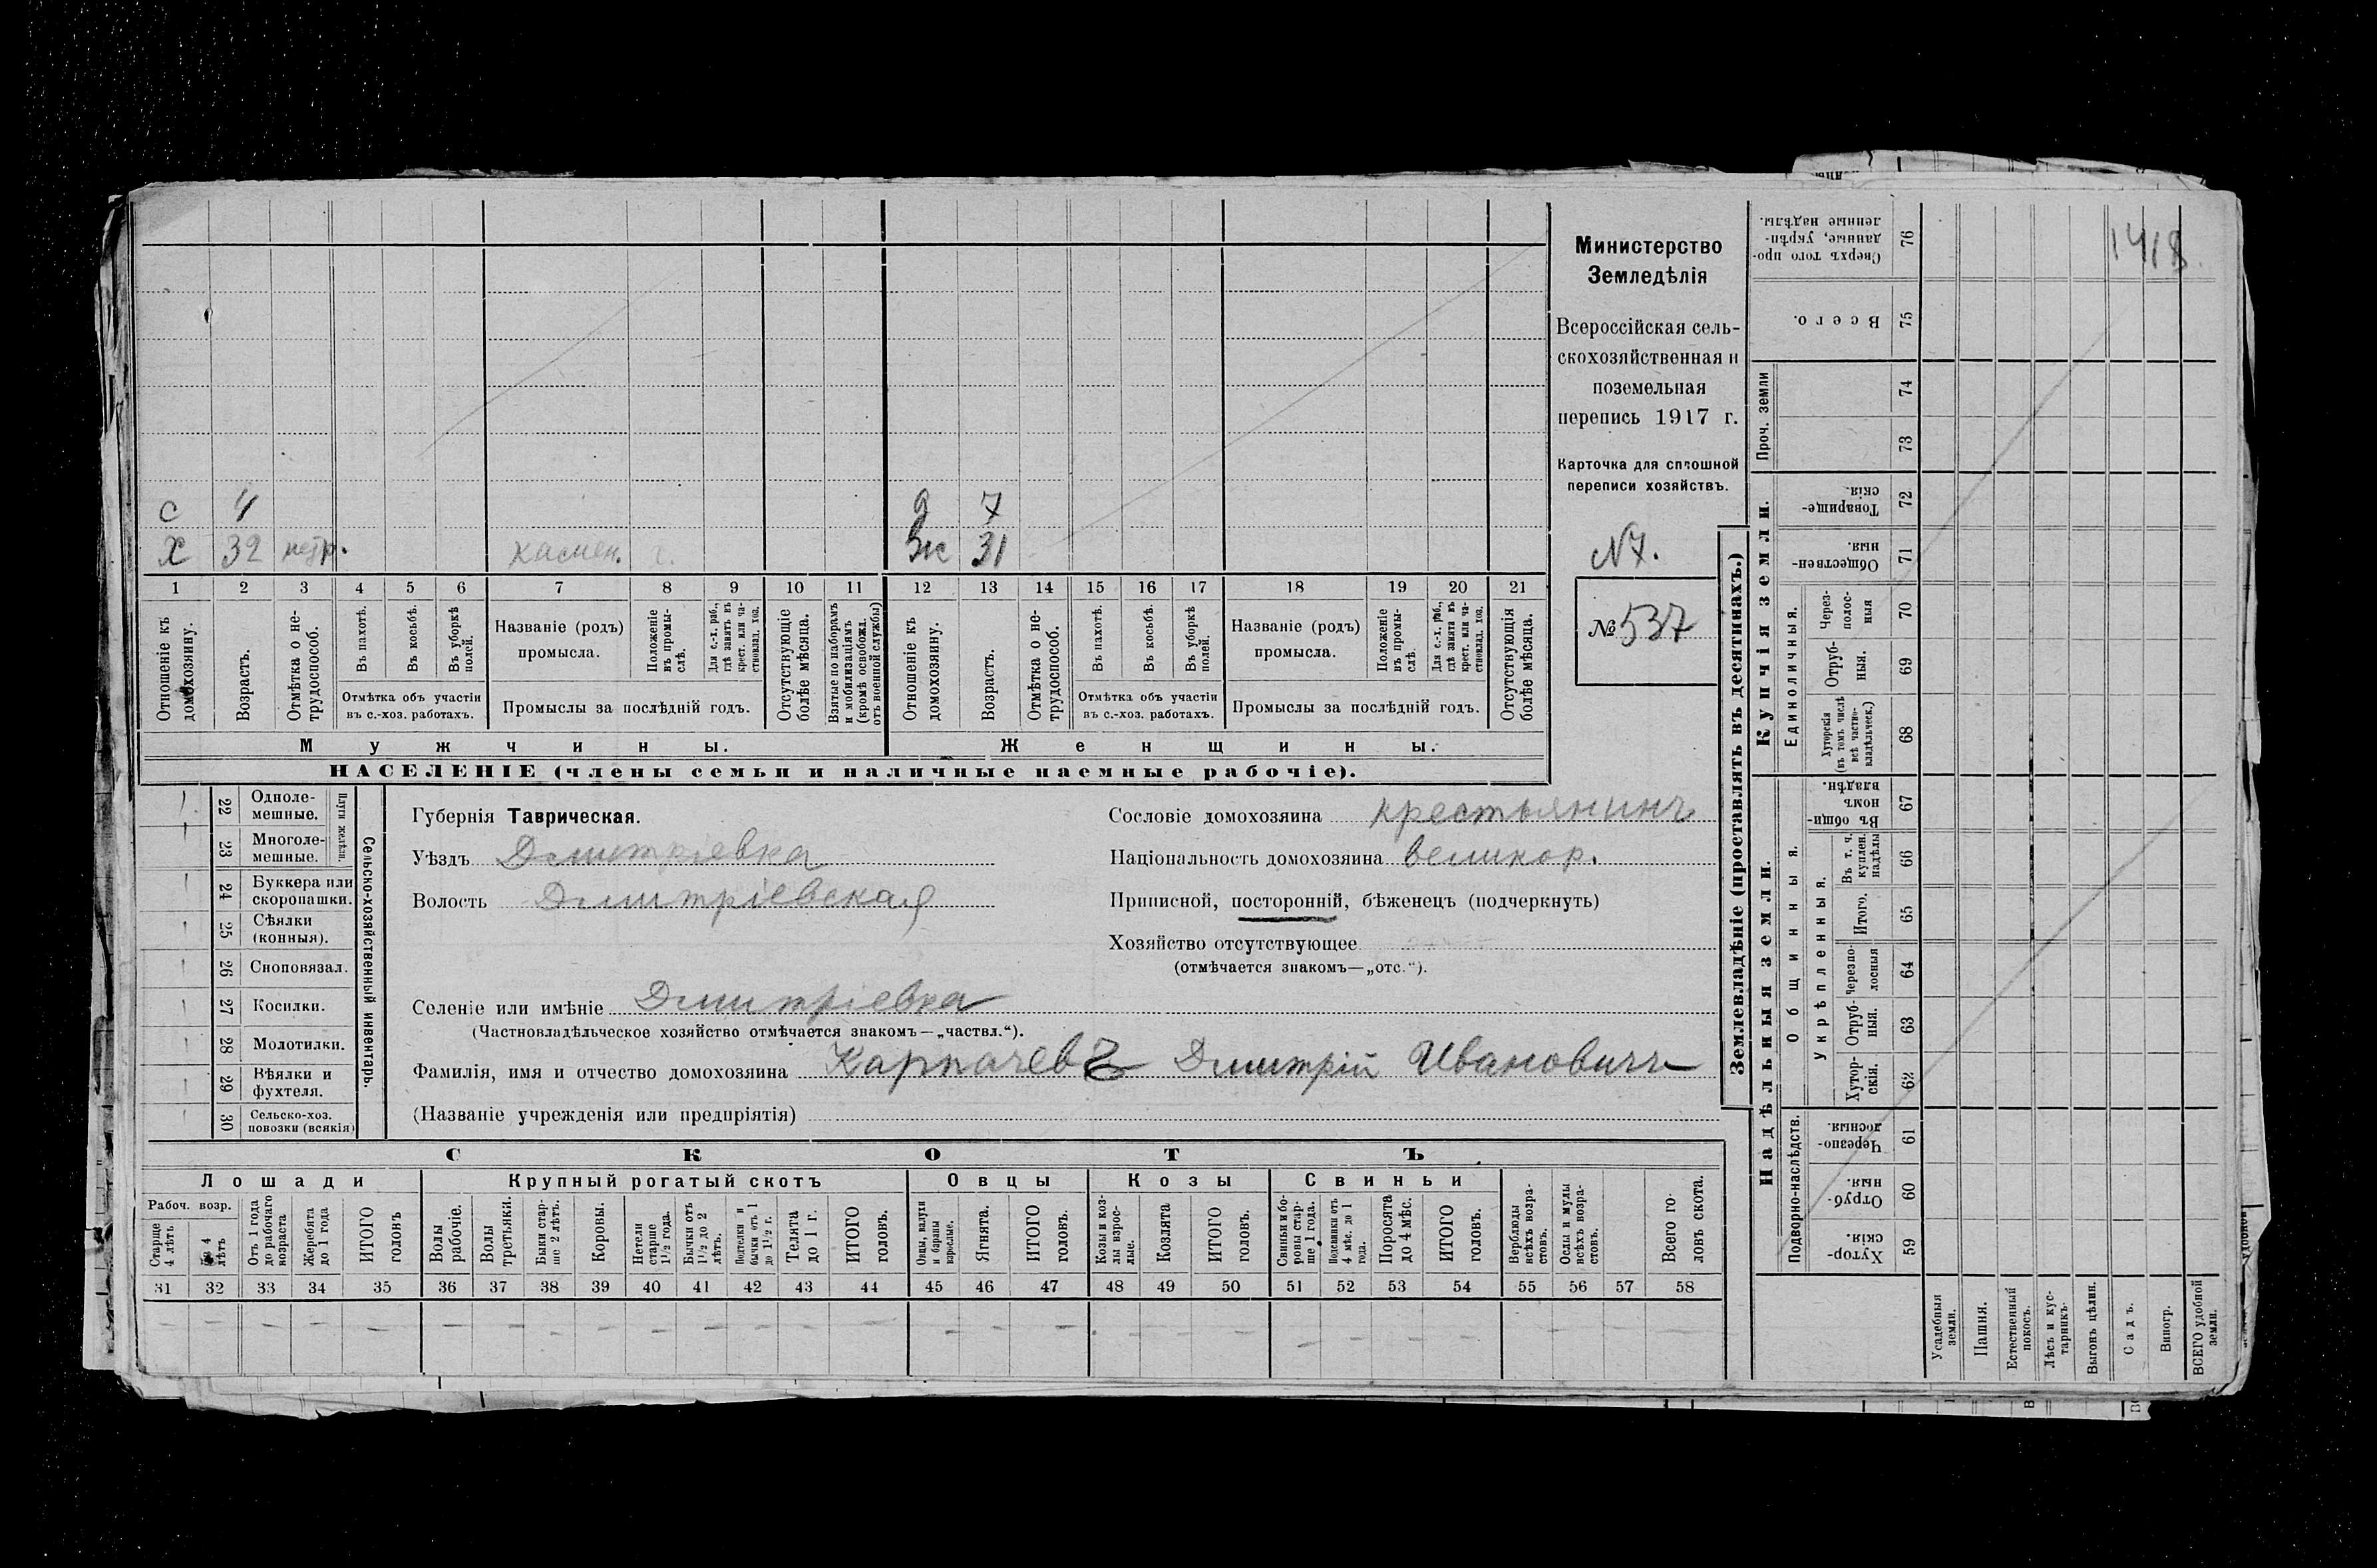 1418
Министерство
Земледѣлія
Всероссійская сель-
скохозяйственная и
поземельная
перепись 1917 г.
Карточка для сплошной
переписи хозяйствъ.
№ 7.
№ 537
с 4 д 7
х 32 нетр. жс 31
1 2 3 4 5 6 7 8 9 10 11 12 13 14 15 16 17 18 19 20 21
Отношеніе къ домохозяину.
Возрастъ.
Отмѣтка о не-трудоспособ.
Въ пахотѣ.
Въ косьбѣ.
Въ уборкѣ полей.
Отмѣтка объ участіи
въ с.-хоз. работахъ.
Названіе (родъ)
промысла.
Положеніе въ промы-слѣ.
Для с.-х. раб., гдѣ занятъ въ крест. или ча-стновлад. хоз.
Промыслы за послѣдній годъ.
Отсутствующіе болѣе мѣсяца.
Взятые по наборамъ и мобилизаціямъ (кромѣ освобожд. отъ военной службы)
Отношеніе къ домохозяину.
Возрастъ.
Отмѣтка о не-трудоспособ.
Въ пахотѣ.
Въ косьбѣ.
Въ уборкѣ полей.
Отмѣтка объ участіи
въ с.-хоз. работахъ.
Названіе (родъ)
промысла.
Положеніе въ промы-слѣ.
Для с.-х. раб., гдѣ занята въ крест. или ча-стновлад. хоз.
Промыслы за послѣдній годъ.
Отсутствующія болѣе мѣсяца.
Мужчины. Женщины.
НАСЕЛЕНІЕ (члены семьи и наличные наемные рабочіе).
22 Одноле-
мешные.
23 Многоле-
мешные.
24 Буккера или
скоропашки.
25 Сѣялки
(конныя).
26 Сноповязал.
27 Косилки.
28 Молотилки.
29 Вѣялки и
фухтеля.
30 Сельско-хоз.
повозки (всякія)
Плуги желѣзн.
Сельско-хозяйственный инвентарь.
Губернія Таврическая.
Уѣздъ Дмитріевка
Волость Дмитріевская
Селеніе или имѣніе Дмитріевка
(Частновладѣльческое хозяйство отмѣчается знакомъ—„частвл.“).
Фамилія, имя и отчество домохозяина Карпачевъ Дмитрій Ивановичъ
(Названіе учрежденія или предпріятія)
Сословіе домохозяина крестьянинъ
Національность домохозяина великор.
Приписной, посторонній, бѣженецъ (подчеркнуть)
Хозяйство отсутствующее
(отмѣчается знакомъ—„отс.“).
СКОТЪ
Лошади Крупный рогатый скотъ Овцы Козы Свиньи
Рабоч. возр.
Старше 4 лѣтъ
до 4 лѣтъ
Отъ 1 года до рабочаго возраста
Жеребята до 1 года
ИТОГО головъ
Волы рабочіе.
Волы третьяки.
Быки стар-ше 2 лѣтъ.
Коровы.
Нетели старше 1½ года.
Бычки отъ 1½ до 2 лѣтъ.
Подтелки и бычки отъ 1 до 1½ г.
Телята до 1 г.
ИТОГО головъ.
Овцы, валухи и бараны взрослые.
Ягнята.
ИТОГО головъ.
Козы и коз-лы взрос-лые.
Козлята
ИТОГО головъ.
Свиньи и бо-ровы стар-ше 1 года.
Подсвинки отъ 4 мѣс. до 1 года.
Поросята до 4 мѣс.
ИТОГО головъ.
Верблюды всѣхъ возра-стовъ.
Ослы и мулы всѣхъ возра-стовъ.
Всего го-ловъ скота.
31 32 33 34 35 36 37 38 39 40 41 42 43 44 45 46 47 48 49 50 51 52 53 54 55 56 57 58
Землевладѣніе (проставлять въ десятинахъ.)
Купчія земли.
Надѣльныя земли.
Сверхъ того про-данные, укрѣп-ленные надѣлы. 76
Всего. 75
Проч. земли 74
73
Товарище-скія. 72
Обществен-ныя. 71
Единоличныя.
Через-полос-ныя 70
Отруб-ныя. 69
Хуторскія (въ томъ числѣ всѣ частно-владѣльческ.) 68
Общинныя.
Въ общин-номъ владѣн. 67
Укрѣпленныя.
Въ т. ч. куплен. надѣлы 66
Итого. 65
Черезпо-лосныя 64
Отруб-ныя. 63
Хутор-скія. 62
Подворно-наслѣдств.
Черезпо-лосныя. 61
Отруб-ныя. 60
Хутор-скія. 59
Усадебныя земли.
Пашня.
Естественный покосъ.
Лѣсъ и кус-тарникъ.
Выгонъ цѣлин.
Садъ.
Виногр.
ВСЕГО удобной земли.